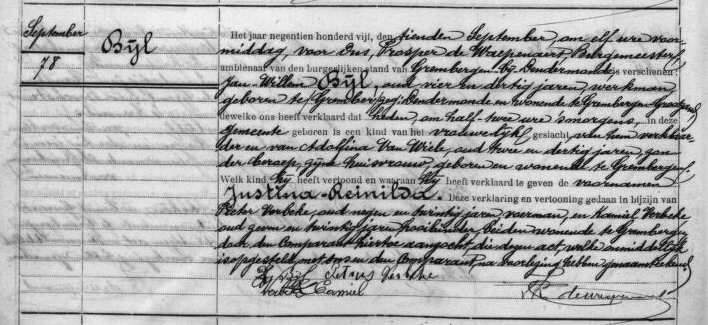 September
78
Bijl
Het jaar negentien honderd vijf, den tienden September, om elf ure voor-
middag, voor Ons, Prosper de Waepenaert, Burgemeester,
ambtenaar van den burgerlijken stand van Grembergen Bg. Dendermonde is verschenen:
Jan-Willem Bijl, oud vier en dertig jaren, werkman,
geboren te Grembergen, Dendermonde en wonende te Grembergen
dewelke ons heeft verklaard dat heden, om half twee ure smorgens, in deze
gemeente geboren is een kind van het vrouwelijk geslacht, van hem verklaar-
der en van Adolfina Van Wiele, oud twee en dertig jaren, zon-
der beroep, zijne huisvrouw, geboren en wonende te Grembergen.
Welk kind hij heeft vertoond en waaraan hij heeft verklaard te geven de voornamen
Justina-Reinilda. Deze verklaring en vertooning gedaan in bijzijn van
Pieter Verbeke, oud negen en twintig jaren, voerman, en Kamiel Verbeke
oud zeven en twintig jaren, beiden wonende te Grembergen
door den Comparant hiertoe aangezocht, die dezen act, welke onmiddelijk
is opgesteld, met ons en den Comparant, na voorlezing hebben onderteekend.
Bijl Petrus Verbeke
Verbeke Camiel